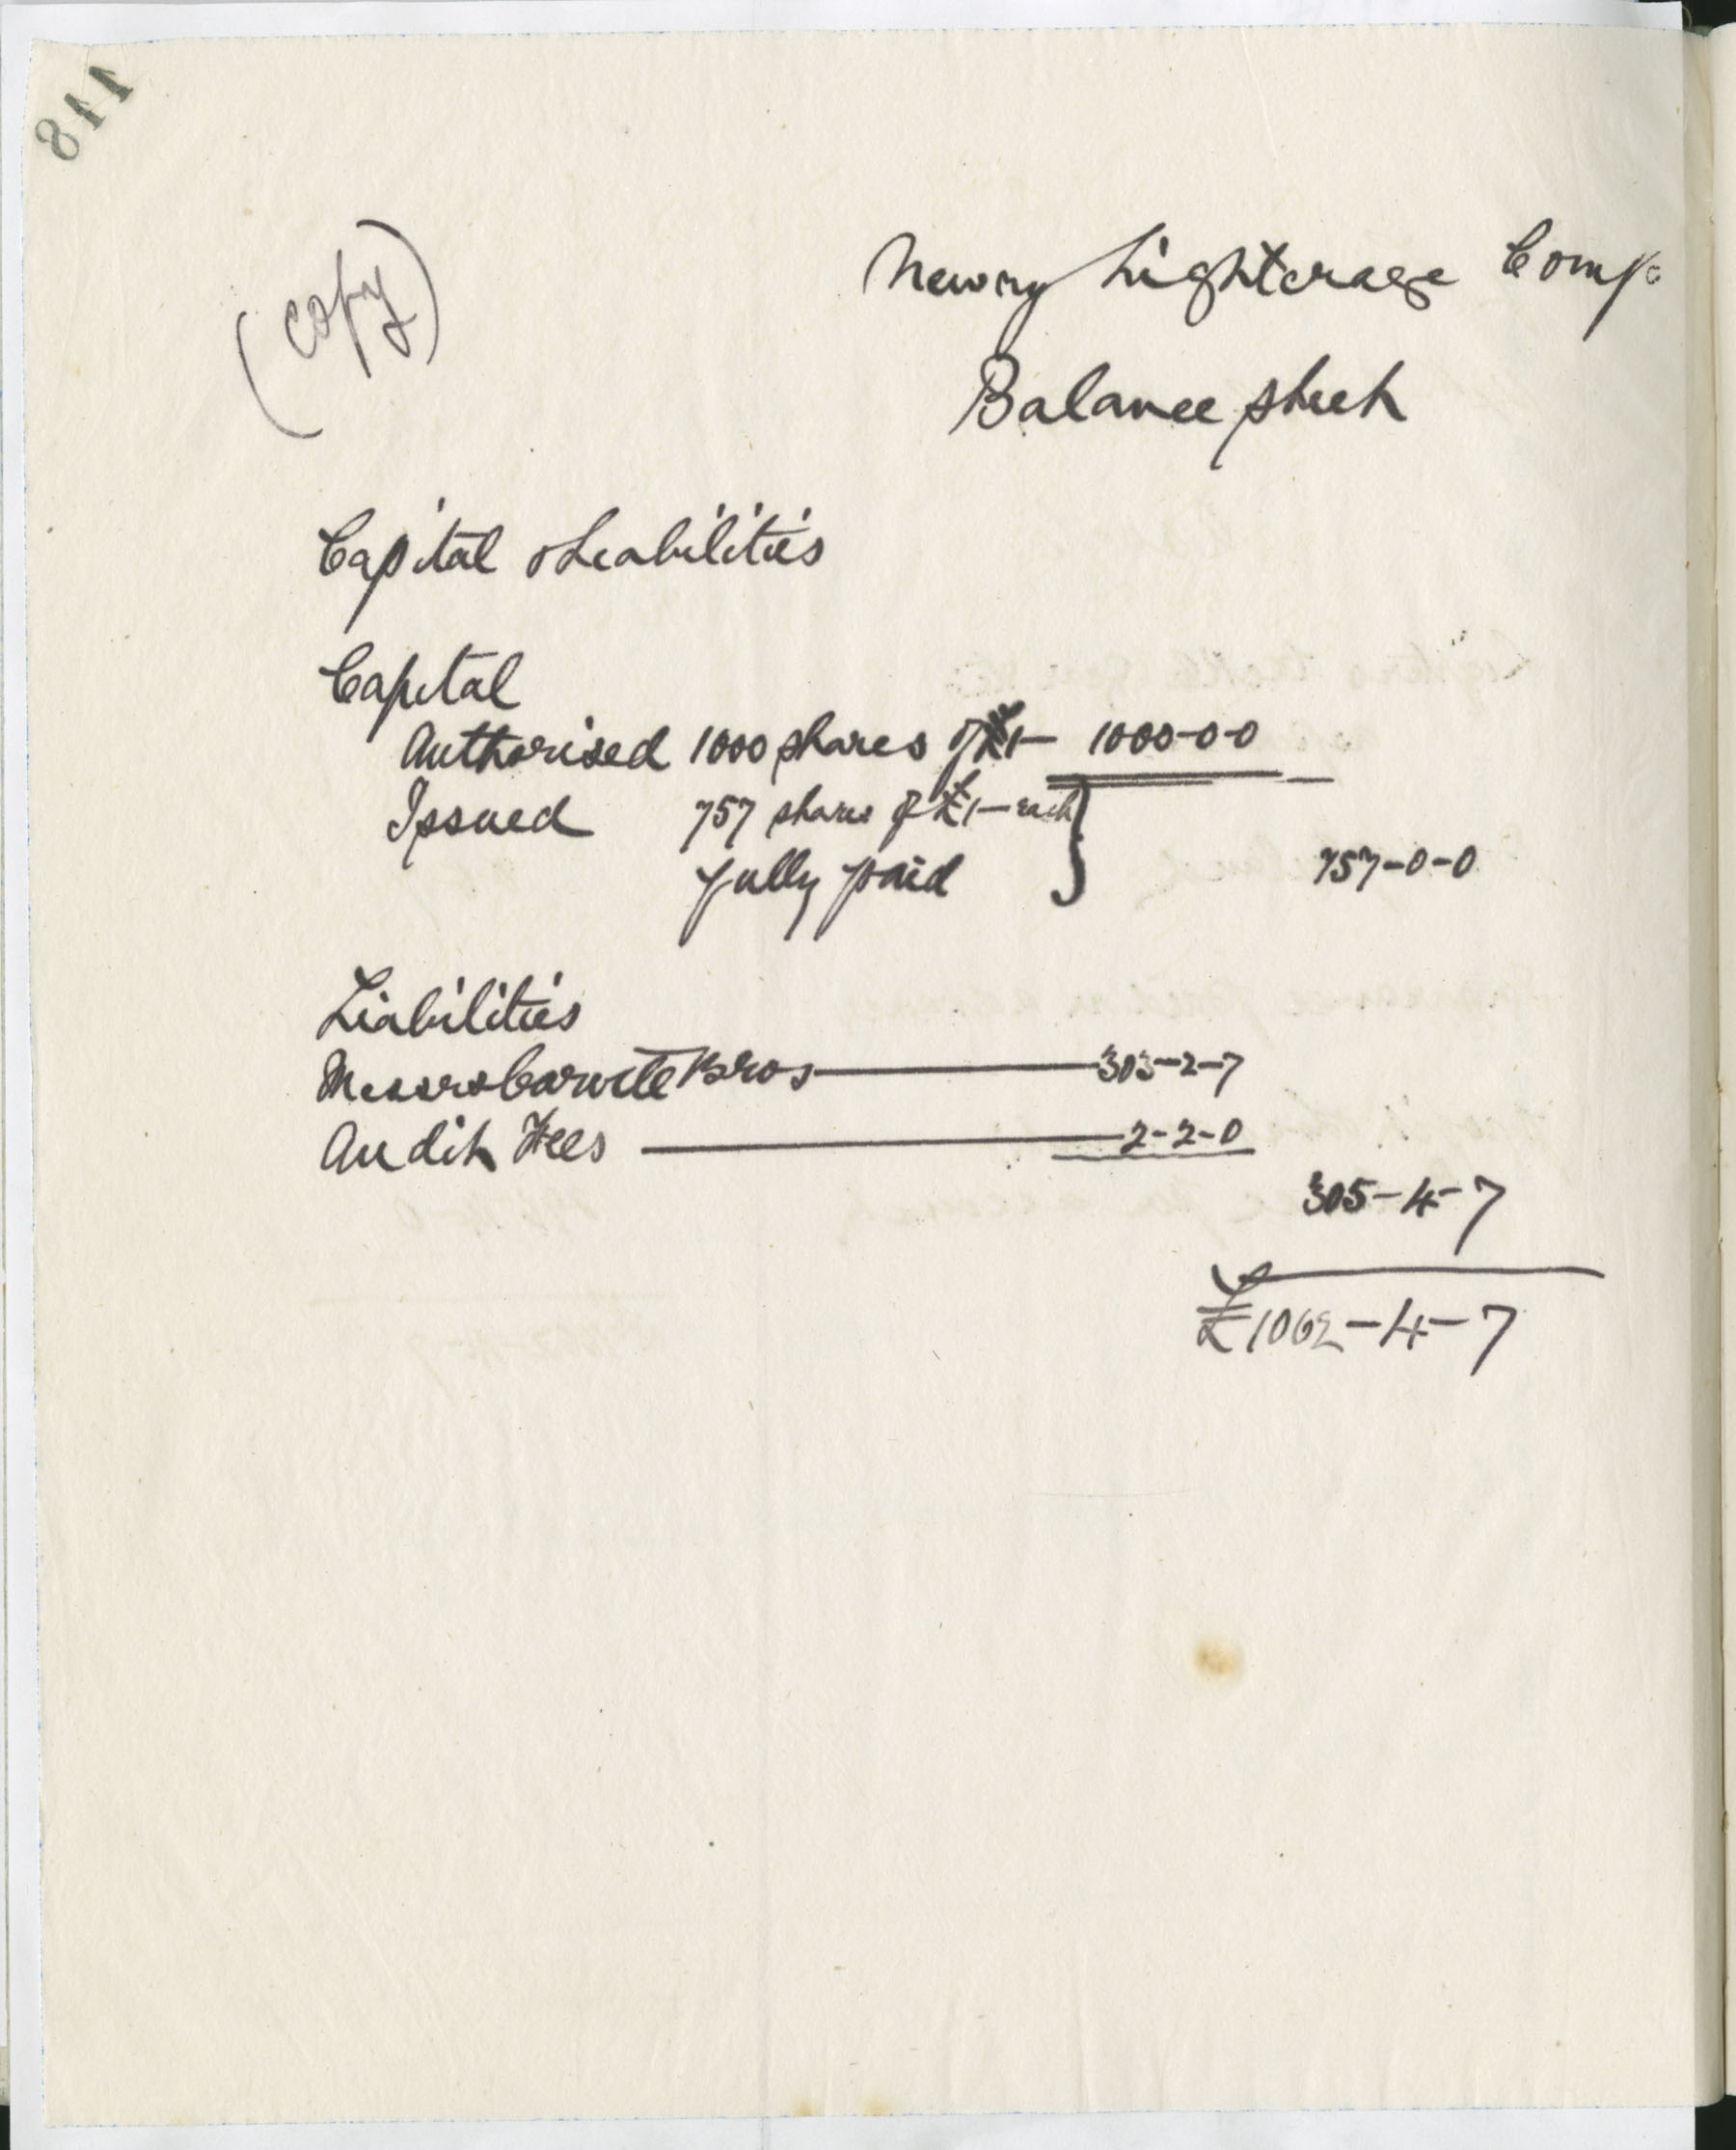 811
(copy)
Newry Lighterage Comp
Balance sheet
Capital & Liabilities
Capital
Authorised 1000 shares of £1— 1000-0-0
Issued 757 shares of £1— each
fully paid } 757-0-0
Liabilities
Messrs Bros — 303-2-7
Audit Fees — 2-2-0
305-4-7
£1062-4-7